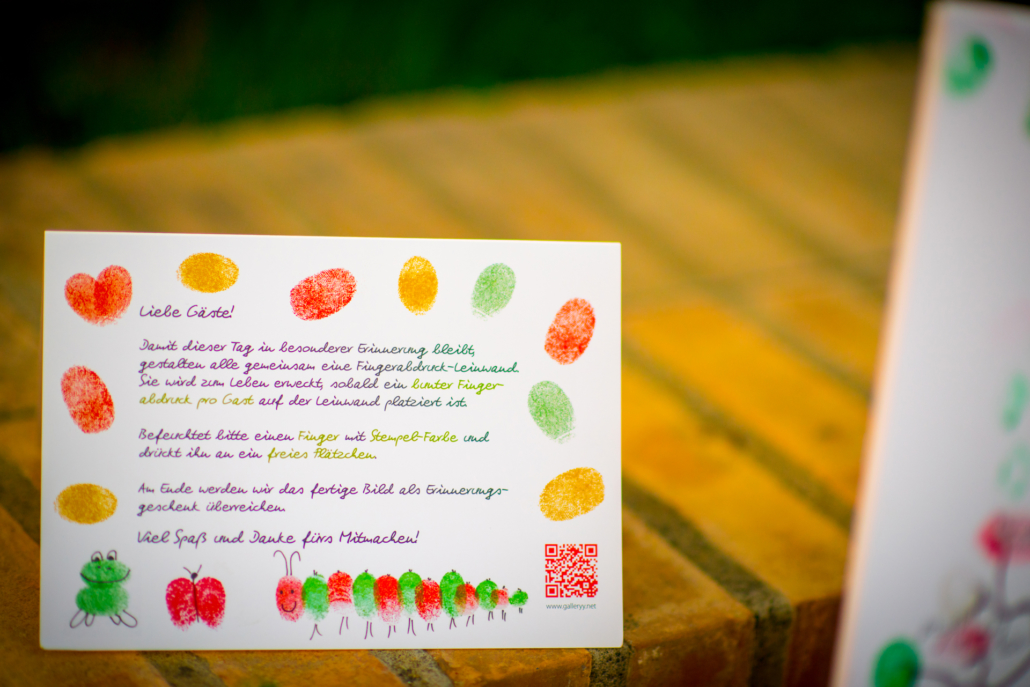 Liebe Gäste!
Damit dieser Tag in besonderer Erinnerung bleibt,
gestalten alle gemeinsam eine Fingerabdruck-Leinwand.
Sie wird zum Leben erweckt, sobald ein bunter Finger-
abdruck pro Gast auf der Leinwand platziert ist.
Befeuchtet bitte einen Finger mit Stempel-Farbe und
drückt ihn an ein freies Plätzchen.
Am Ende werden wir das fertige Bild als Erinnerungs-
geschenk überreichen.
Viel Spaß und Danke fürs Mitmachen!
www.galleryy.net